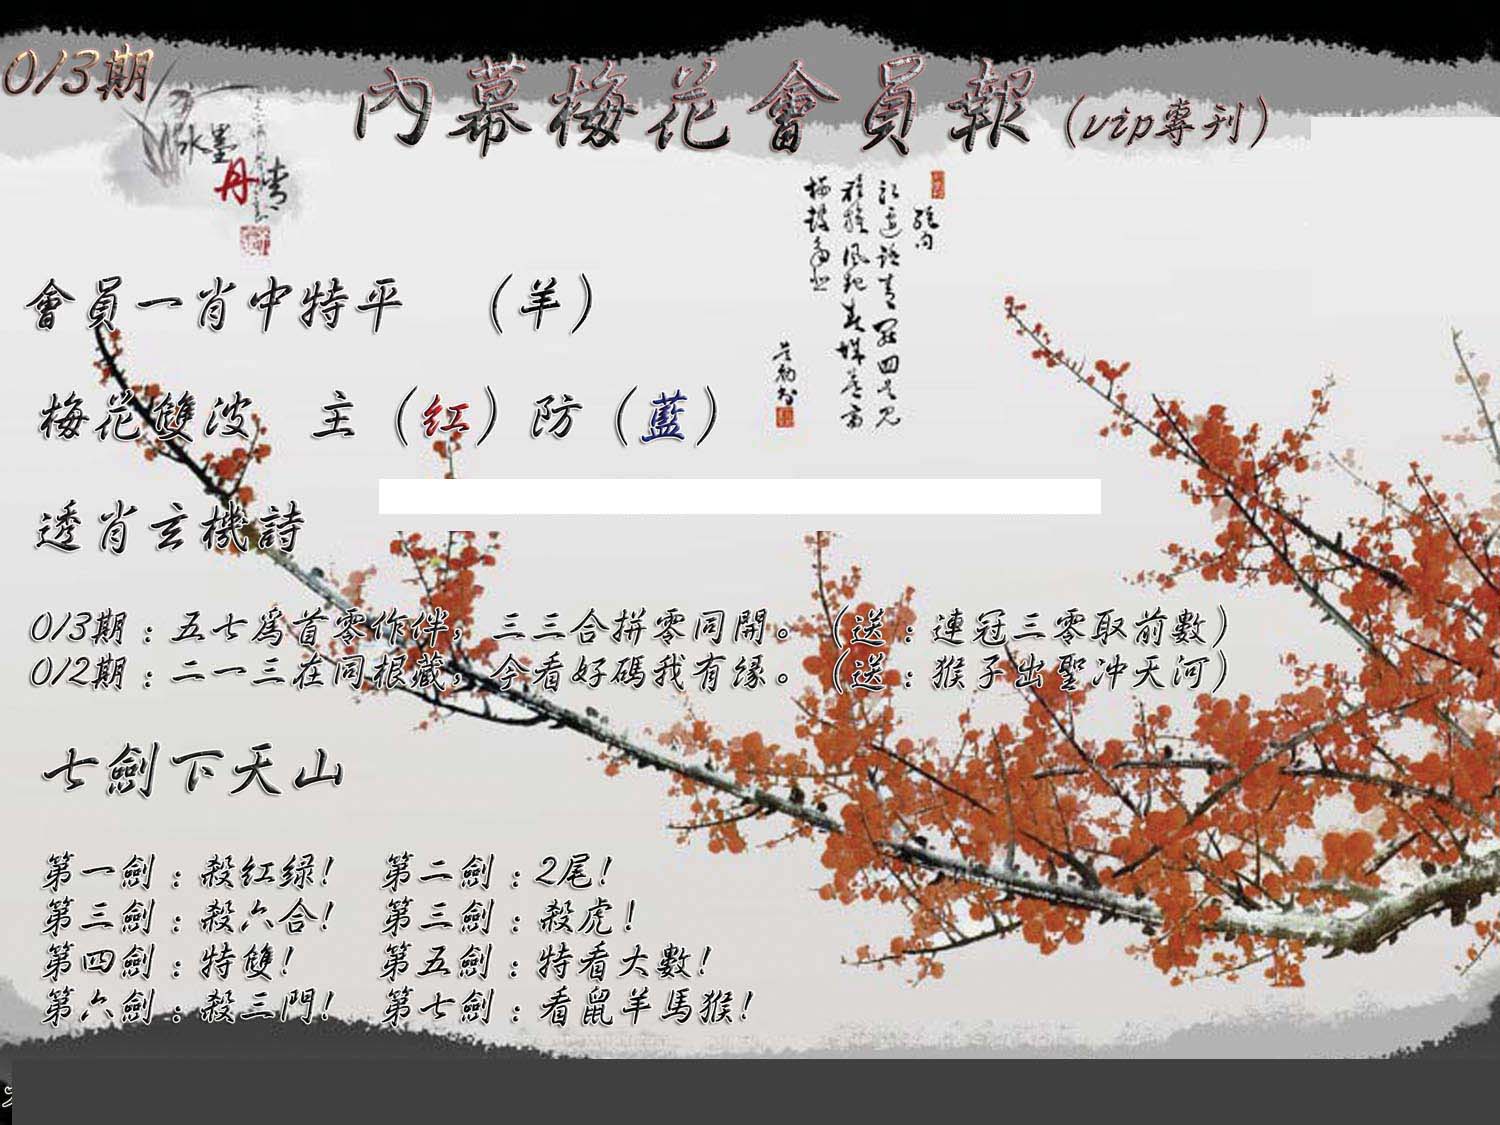 013期
內幕梅花會員報（vip專刊）
水墨
丹青
會員一肖中特平 （羊）
梅花雙波 主（紅）防（藍）
透肖玄機詩
013期：五七為首零作伴，三三合拼零同開。（送：連冠三零取前數）
012期：二一三在同根藏，今看好碼我有緣。（送：猴子出聖冲天河）
七劍下天山
第一劍：殺紅绿！ 第二劍：2尾！
第三劍：殺六合！ 第三劍：殺虎！
第四劍：特雙！ 第五劍：特看大數！
第六劍：殺三門！ 第七劍：看鼠羊馬猴！